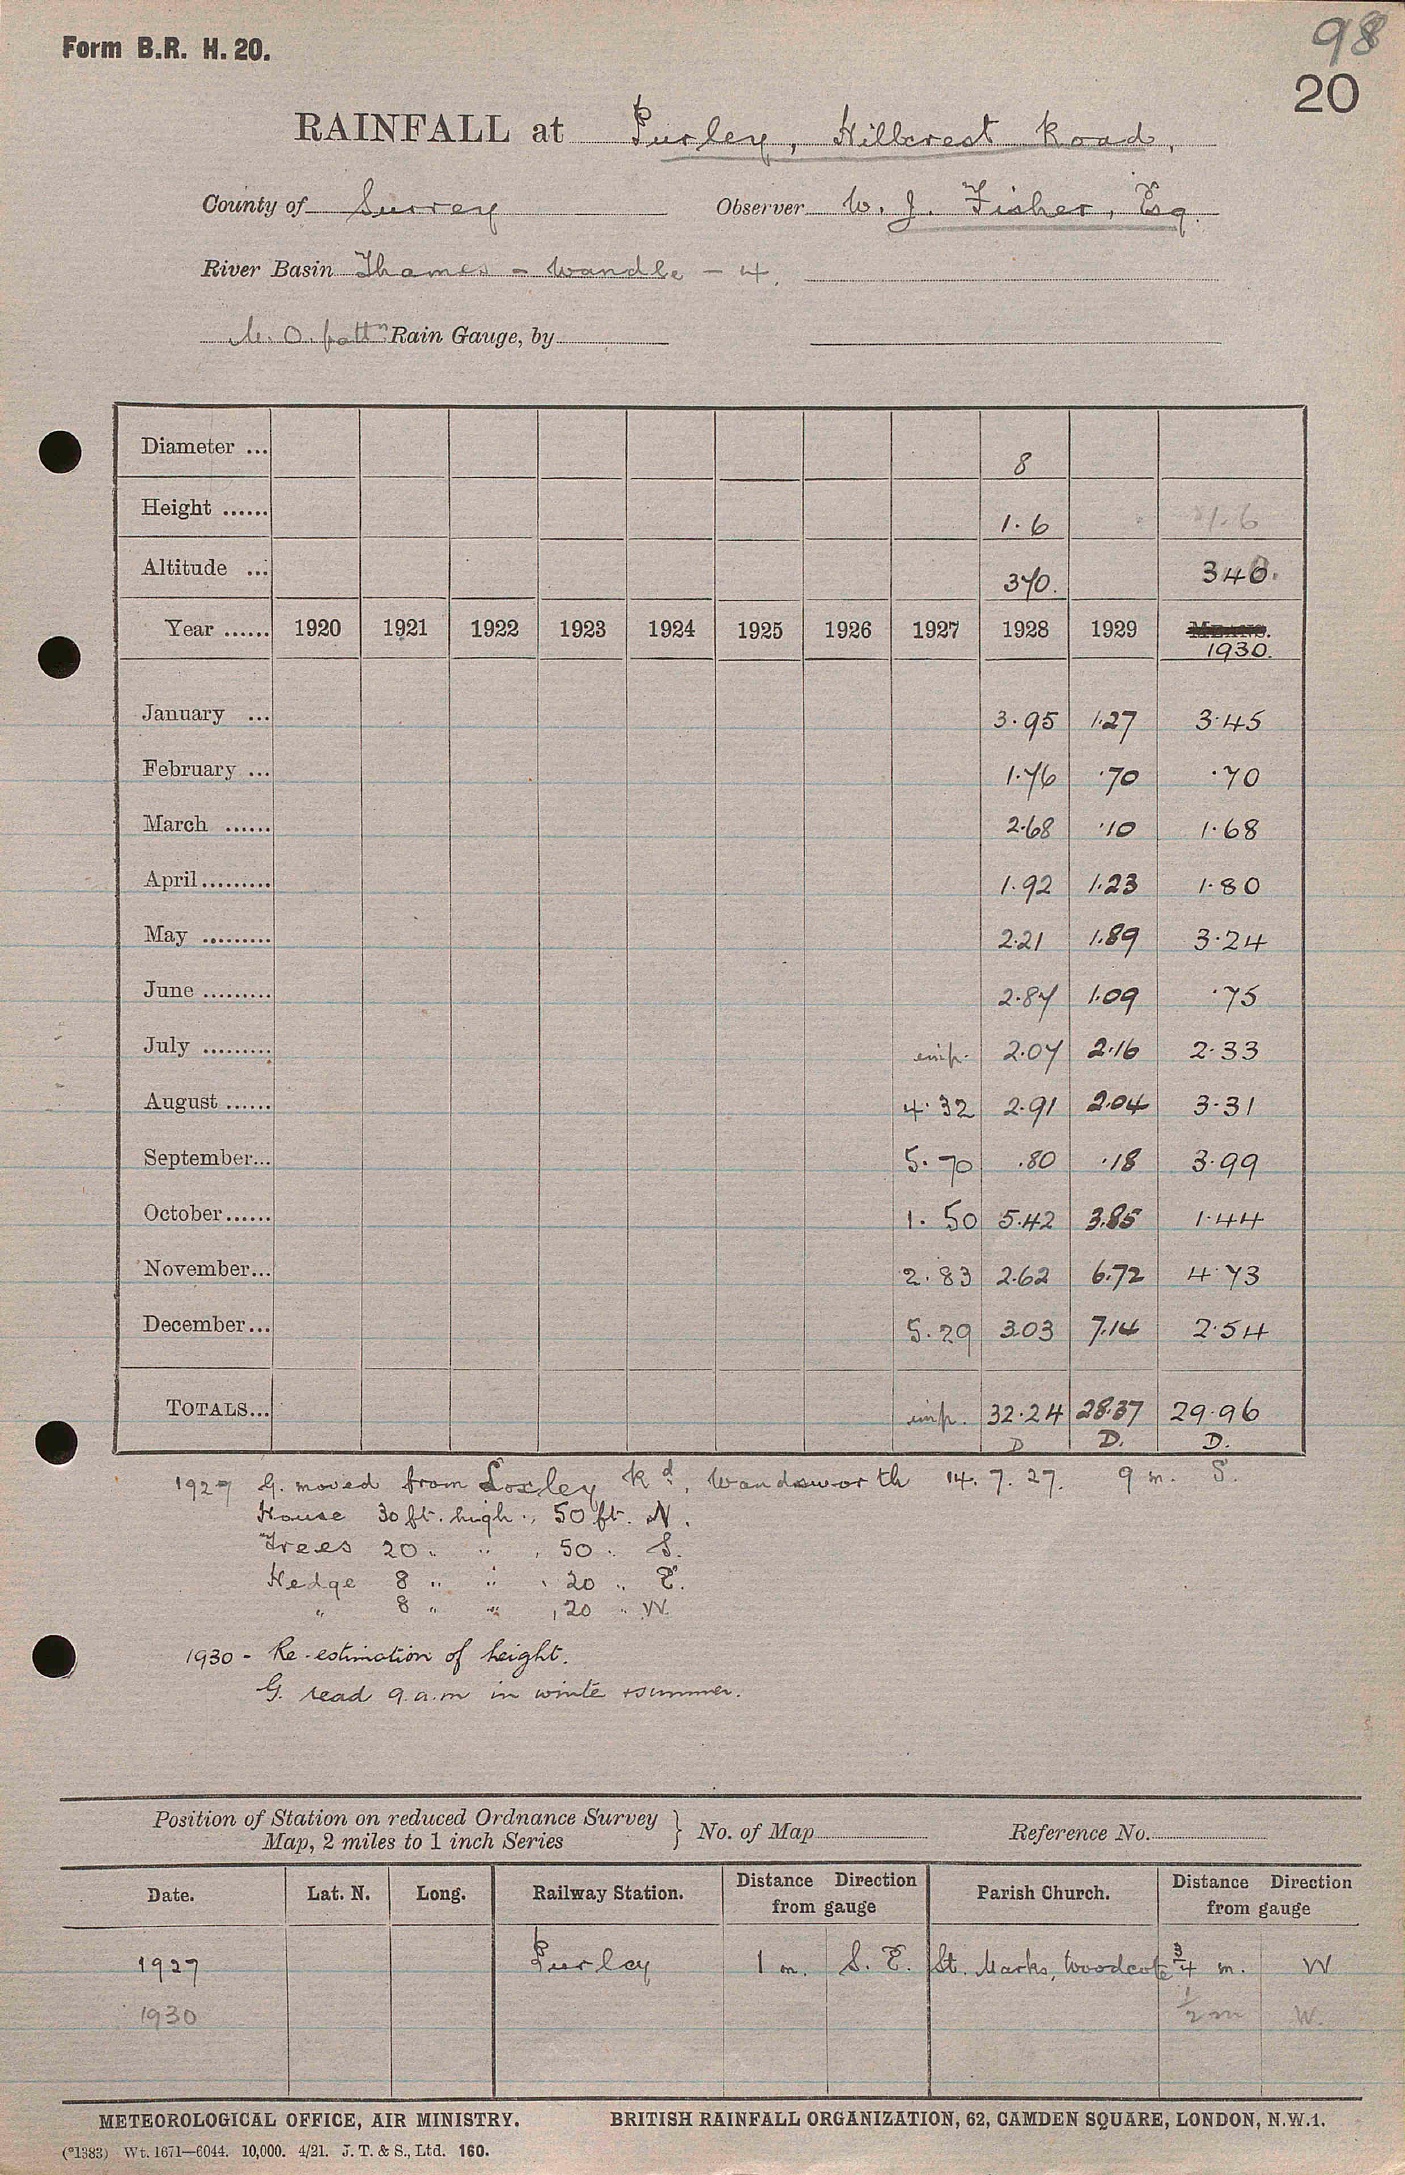 98
Form B.R. H. 20.
20
RAINFALL at Purley, Hillcrest Road,
County of Surrey Observer W. J. Fisher, Esq.
River Basin Thames - Wandle - 4.
M. O. pattn Rain Gauge, by
Diameter ... 8
Height ...... 1.6 1.6
Altitude ... 370. 340.
Year ...... 1920 1921 1922 1923 1924 1925 1926 1927 1928 1929 MEANS.
1930.
January ... 3.95 1.27 3.45
February ... 1.76 .70 .70
March ...... 2.68 .10 1.68
April......... 1.92 1.23 1.80
May ......... 2.21 1.89 3.24
June ......... 2.87 1.09 .75
July ......... imp. 2.07 2.16 2.33
August ...... 4.32 2.91 2.04 3.31
September... 5.70 .80 .18 3.99
October...... 1.50 5.42 3.85 1.44
November... 2.83 2.62 6.72 4.73
December... 5.29 3.03 7.14 2.54
TOTALS... imp. 32.24 28.37 29.96
D D. D.
1927 G. moved from Loxley Rd, Wandsworth 14.7.27. 9 m. S.
House 30 ft. high, 50 ft. N.
Trees 20 " " , 50 " S.
Hedge 8 " " , 20 " E.
" 8 " " , 20 " W.
1930 - Re-estimation of height.
G. read 9.a.m in winte + summer.
Position of Station on reduced Ordnance Survey
Map, 2 miles to 1 inch Series } No. of Map Reference No.
Date. Lat. N. Long. Railway Station. Distance Direction from gauge Parish Church. Distance Direction from gauge
1927 Purley 1 m. S. E. St. Marks, Woodcote 3/4 m. W
1930 1/2 m W.
METEOROLOGICAL OFFICE, AIR MINISTRY. BRITISH RAINFALL ORGANIZATION, 62, CAMDEN SQUARE, LONDON, N.W.1.
(*1383) Wt. 1671—6044. 10,000. 4/21. J. T. & S., Ltd. 160.